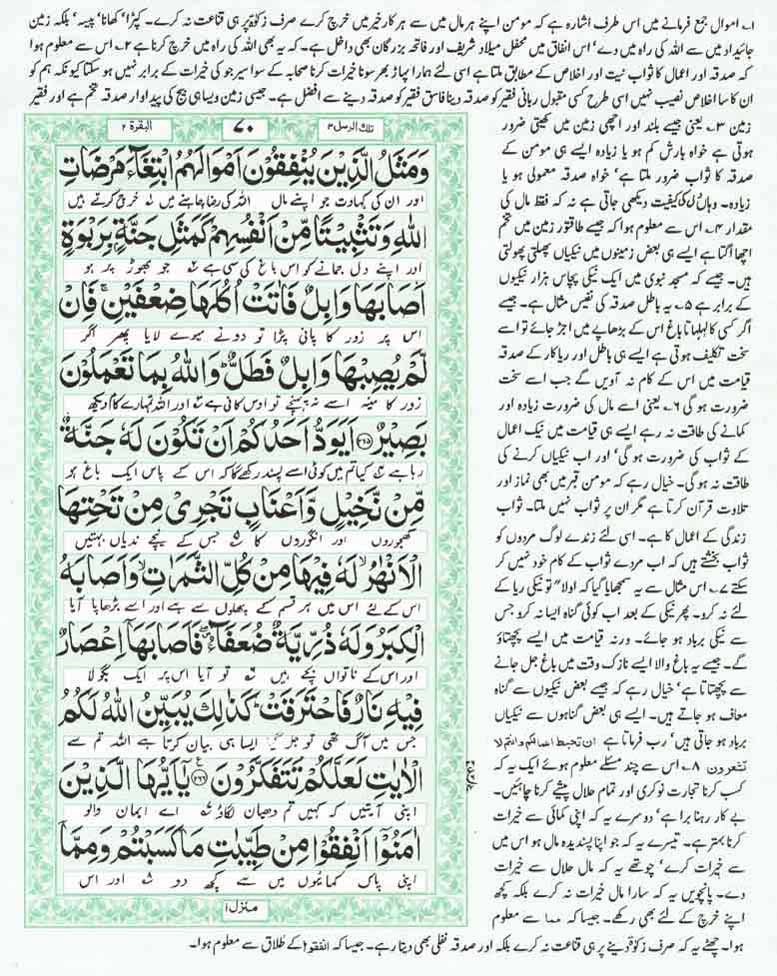 ۱۔ اموال جمع فرمانے میں اس طرف اشارہ ہے کہ مومن اپنے ہر مال میں سے ہر کار خیر میں خرچ کرے صرف زکوٰۃ پر ہی قناعت نہ کرے۔ کپڑا‘ کھانا‘ پیسہ‘ بلکہ زمین
جائیداد میں سے اللہ کی راہ میں دے‘ اس انفاق میں محفل میلاد شریف اور فاتحہ بزرگان بھی داخل ہے۔ کہ یہ بھی اللہ کی راہ میں خرچ کرنا ہے ۲۔ اس سے معلوم ہوا
کہ صدقہ اور اعمال کا ثواب نیت اور اخلاص کے مطابق ملتا ہے اسی لئے ہمارا پہاڑ بھر سونا خیرات کرنا صحابہ کے سوا سیر جو کی خیرات کے برابر نہیں ہو سکتا کیونکہ ہم کو
ان کا سا اخلاص نصیب نہیں اسی طرح کسی مقبول ربانی فقیر کو صدقہ دینا فاسق فقیر کو صدقہ دینے سے افضل ہے۔ جیسی زمین ویسا ہی بیج کی پیداوار صدقہ تخم ہے اور فقیر
زمین ۳۔ یعنی جیسے بلند اور اچھی زمین میں کھیتی ضرور
ہوتی ہے خواہ بارش کم ہو یا زیادہ ایسے ہی مومن کے
صدقہ کا ثواب ضرور ملتا ہے‘ خواہ صدقہ معمولی ہو یا
زیادہ۔ وہاں دل کی کیفیت دیکھی جاتی ہے نہ کہ فقط مال کی
مقدار ۴۔ اس سے معلوم ہوا کہ جیسے طاقتور زمین میں تخم
اچھا اگتا ہے ایسے ہی بعض زمینوں میں نیکیاں پھلتی پھولتی
ہیں۔ جیسے کہ مسجد نبوی میں ایک نیکی پچاس ہزار نیکیوں
کے برابر ہے ۵۔ یہ باطل صدقہ کی نفیس مثال ہے۔ جیسے
اگر کسی کا لہلہاتا باغ اس کے بڑھاپے میں اجڑ جائے تو اسے
سخت تکلیف ہوتی ہے ایسے ہی باطل اور ریاکار کے صدقہ
قیامت میں اس کے کام نہ آویں گے جب اسے سخت
ضرورت ہو گی ۶۔ یعنی اسے مال کی ضرورت زیادہ اور
کمانے کی طاقت نہ رہے ایسے ہی قیامت میں نیک اعمال
کے ثواب کی ضرورت ہو گی‘ اور اب نیکیاں کرنے کی
طاقت نہ ہو گی۔ خیال رہے کہ مومن قبر میں بھی نماز اور
تلاوت قرآن کرتا ہے مگر ان پر ثواب نہیں ملتا۔ ثواب
زندگی کے اعمال کا ہے۔ اسی لئے زندے لوگ مردوں کو
ثواب بخشتے ہیں کہ اب مردے ثواب کے کام خود نہیں کر
سکتے ۷۔ اس مثال سے یہ سمجھایا گیا کہ اولاً“ تو نیکی ریا کے
لئے نہ کرو۔ پھر نیکی کے بعد اب کوئی گناہ ایسا نہ کرو جس
سے نیکی برباد ہو جائے۔ ورنہ قیامت میں ایسے پچھتاؤ
گے۔ جیسے یہ باغ والا ایسے نازک وقت میں باغ جل جانے
سے پچھتاتا ہے‘ خیال رہے کہ جیسے بعض نیکیوں سے گناہ
معاف ہو جاتے ہیں۔ ایسے ہی بعض گناہوں سے نیکیاں
برباد ہو جاتی ہیں‘ رب فرماتا ہے ان تحبط اعمالکم وانتم لا
تشعرون ۸۔ اس سے چند مسئلے معلوم ہوئے ایک یہ کہ
کسب کرنا تجارت نوکری اور تمام حلال پیشے کرنا چاہئیں۔
بے کار رہنا برا ہے‘ دوسرے یہ کہ اپنی کمائی سے خیرات
کرنا بہتر ہے۔ تیسرے یہ کہ جو اپنا پسندیدہ مال ہو اس میں
سے خیرات کرے‘ چوتھے یہ کہ مال حلال سے خیرات
دے۔ پانچویں یہ کہ سارا مال خیرات نہ کرے بلکہ کچھ
اپنے خرچ کے لئے بھی رکھے۔ جیسا کہ مما سے معلوم
ہوا۔ چھٹے یہ کہ صرف زکوٰۃ دینے پر ہی قناعت نہ کرے بلکہ اور صدقہ نفلی بھی دیتا رہے۔ جیسا کہ انفقوا کے طلاق سے معلوم ہوا۔
تلک الرسل ۳ ۷۰ البقرۃ ۲
وَمَثَلُ الَّذِیْنَ یُنْفِقُوْنَ اَمْوَالَهُمُ ابْتِغَآءَ مَرْضَاتِ
اور ان کی کہاوت جو اپنے مال اللہ کی رضا چاہنے میں خرچ کرتے ہیں
اللّٰهِ وَتَثْبِیْتًا مِّنْ اَنْفُسِهِمْ كَمَثَلِ جَنَّةٍۭ بِرَبْوَةٍ
اور اپنے دل جمانے کو اس باغ کی سی ہے جو بھوڑ پر ہو
اَصَابَهَا وَابِلٌ فَاٰتَتْ اُكُلَهَا ضِعْفَیْنِ ۚ فَاِنْ
اس پر زور کا پانی پڑا تو دونے میوے لایا پھر اگر
لَّمْ یُصِبْهَا وَابِلٌ فَطَلٌّ ؕ وَاللّٰهُ بِمَا تَعْمَلُوْنَ
زور کا مینہ اسے نہ پہنچے تو اوس کافی ہے اور اللہ تمہارے کام دیکھ
بَصِیْرٌ ﴿۲۶۵﴾ اَیَوَدُّ اَحَدُكُمْ اَنْ تَكُوْنَ لَهٗ جَنَّةٌ
رہا ہے کیا تم میں کوئی اسے پسند رکھے گا کہ اس کے پاس ایک باغ ہو
مِّنْ نَّخِیْلٍ وَّاَعْنَابٍ تَجْرِیْ مِنْ تَحْتِهَا
کھجوروں اور انگوروں کا جس کے نیچے ندیاں بہتیں
الْاَنْهٰرُ ۙ لَهٗ فِیْهَا مِنْ كُلِّ الثَّمَرٰتِ ۙ وَاَصَابَهُ
اس کے لئے اس میں ہر قسم کے پھلوں سے ہے اور اسے بڑھاپا آیا
الْكِبَرُ وَلَهٗ ذُرِّیَّةٌ ضُعَفَآءُ ۖ فَاَصَابَهَاۤ اِعْصَارٌ
اور اس کے ناتواں بچے ہیں تو آیا اس پر ایک بگولا
فِیْهِ نَارٌ فَاحْتَرَقَتْ ؕ كَذٰلِكَ یُبَیِّنُ اللّٰهُ لَكُمُ
جس میں آگ تھی تو جل گیا ایسا ہی بیان کرتا ہے اللہ تم سے
الْاٰیٰتِ لَعَلَّكُمْ تَتَفَكَّرُوْنَ ﴿۲۶۶﴾ یٰۤاَیُّهَا الَّذِیْنَ
اپنی آیتیں کہ کہیں تم دھیان لگاؤ اے ایمان والو
اٰمَنُوْۤا اَنْفِقُوْا مِنْ طَیِّبٰتِ مَا كَسَبْتُمْ وَمِمَّاۤ
اپنی پاک کمائیوں میں سے کچھ دو اور اس
منزل ۱